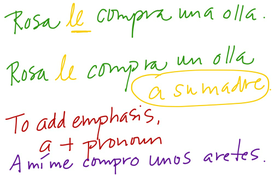 Rosa le compra una olla.
Rosa le compra un olla
a su madre.
To add emphasis,
a + pronoun
A mí me compro unos aretes.